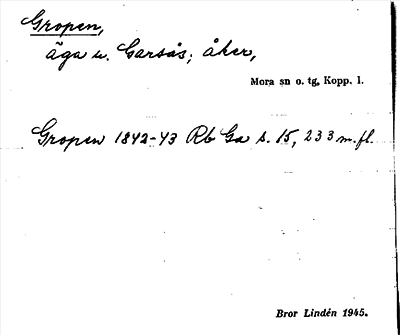 Gropen,
äga u. Garsås; åker,
Mora sn o. tg, Kopp. l.
Gropen 1842-43 Rb Ga s. 15, 233 m.fl.
Bror Lindén 1945.